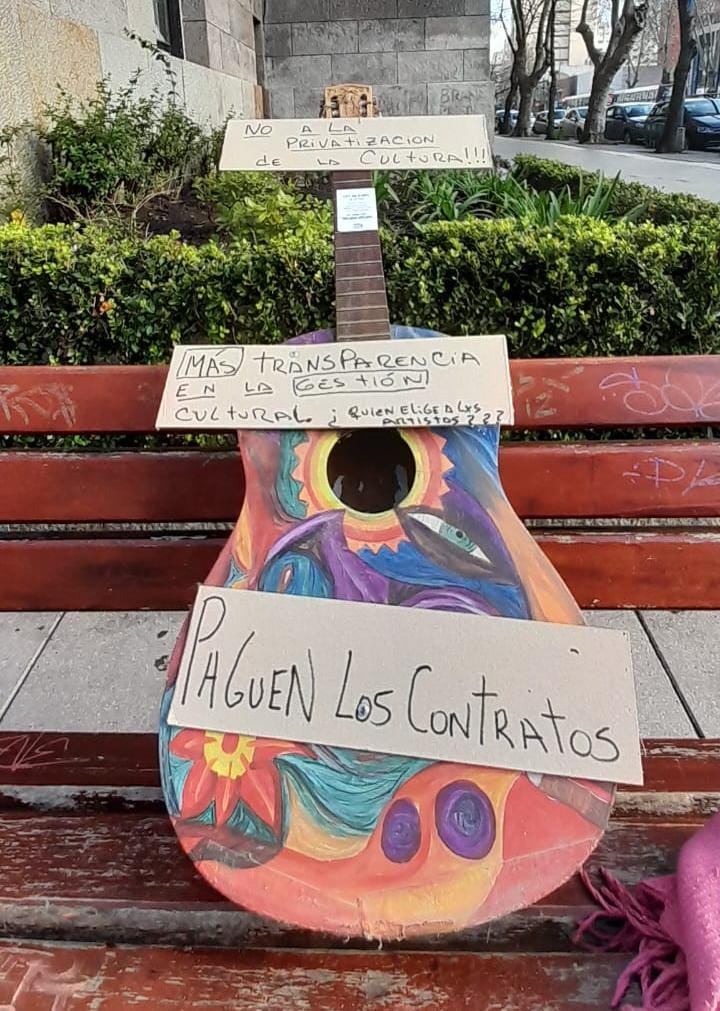 NO A LA
PRIVATIZACION
de LA CULTURA!!!
MÁS TRANSPARENCIA
EN LA GESTIÓN
CULTURAL ¿QUIEN ELIGE A LXS
ARTISTAS???
PAGUEN LOS CONTRATOS